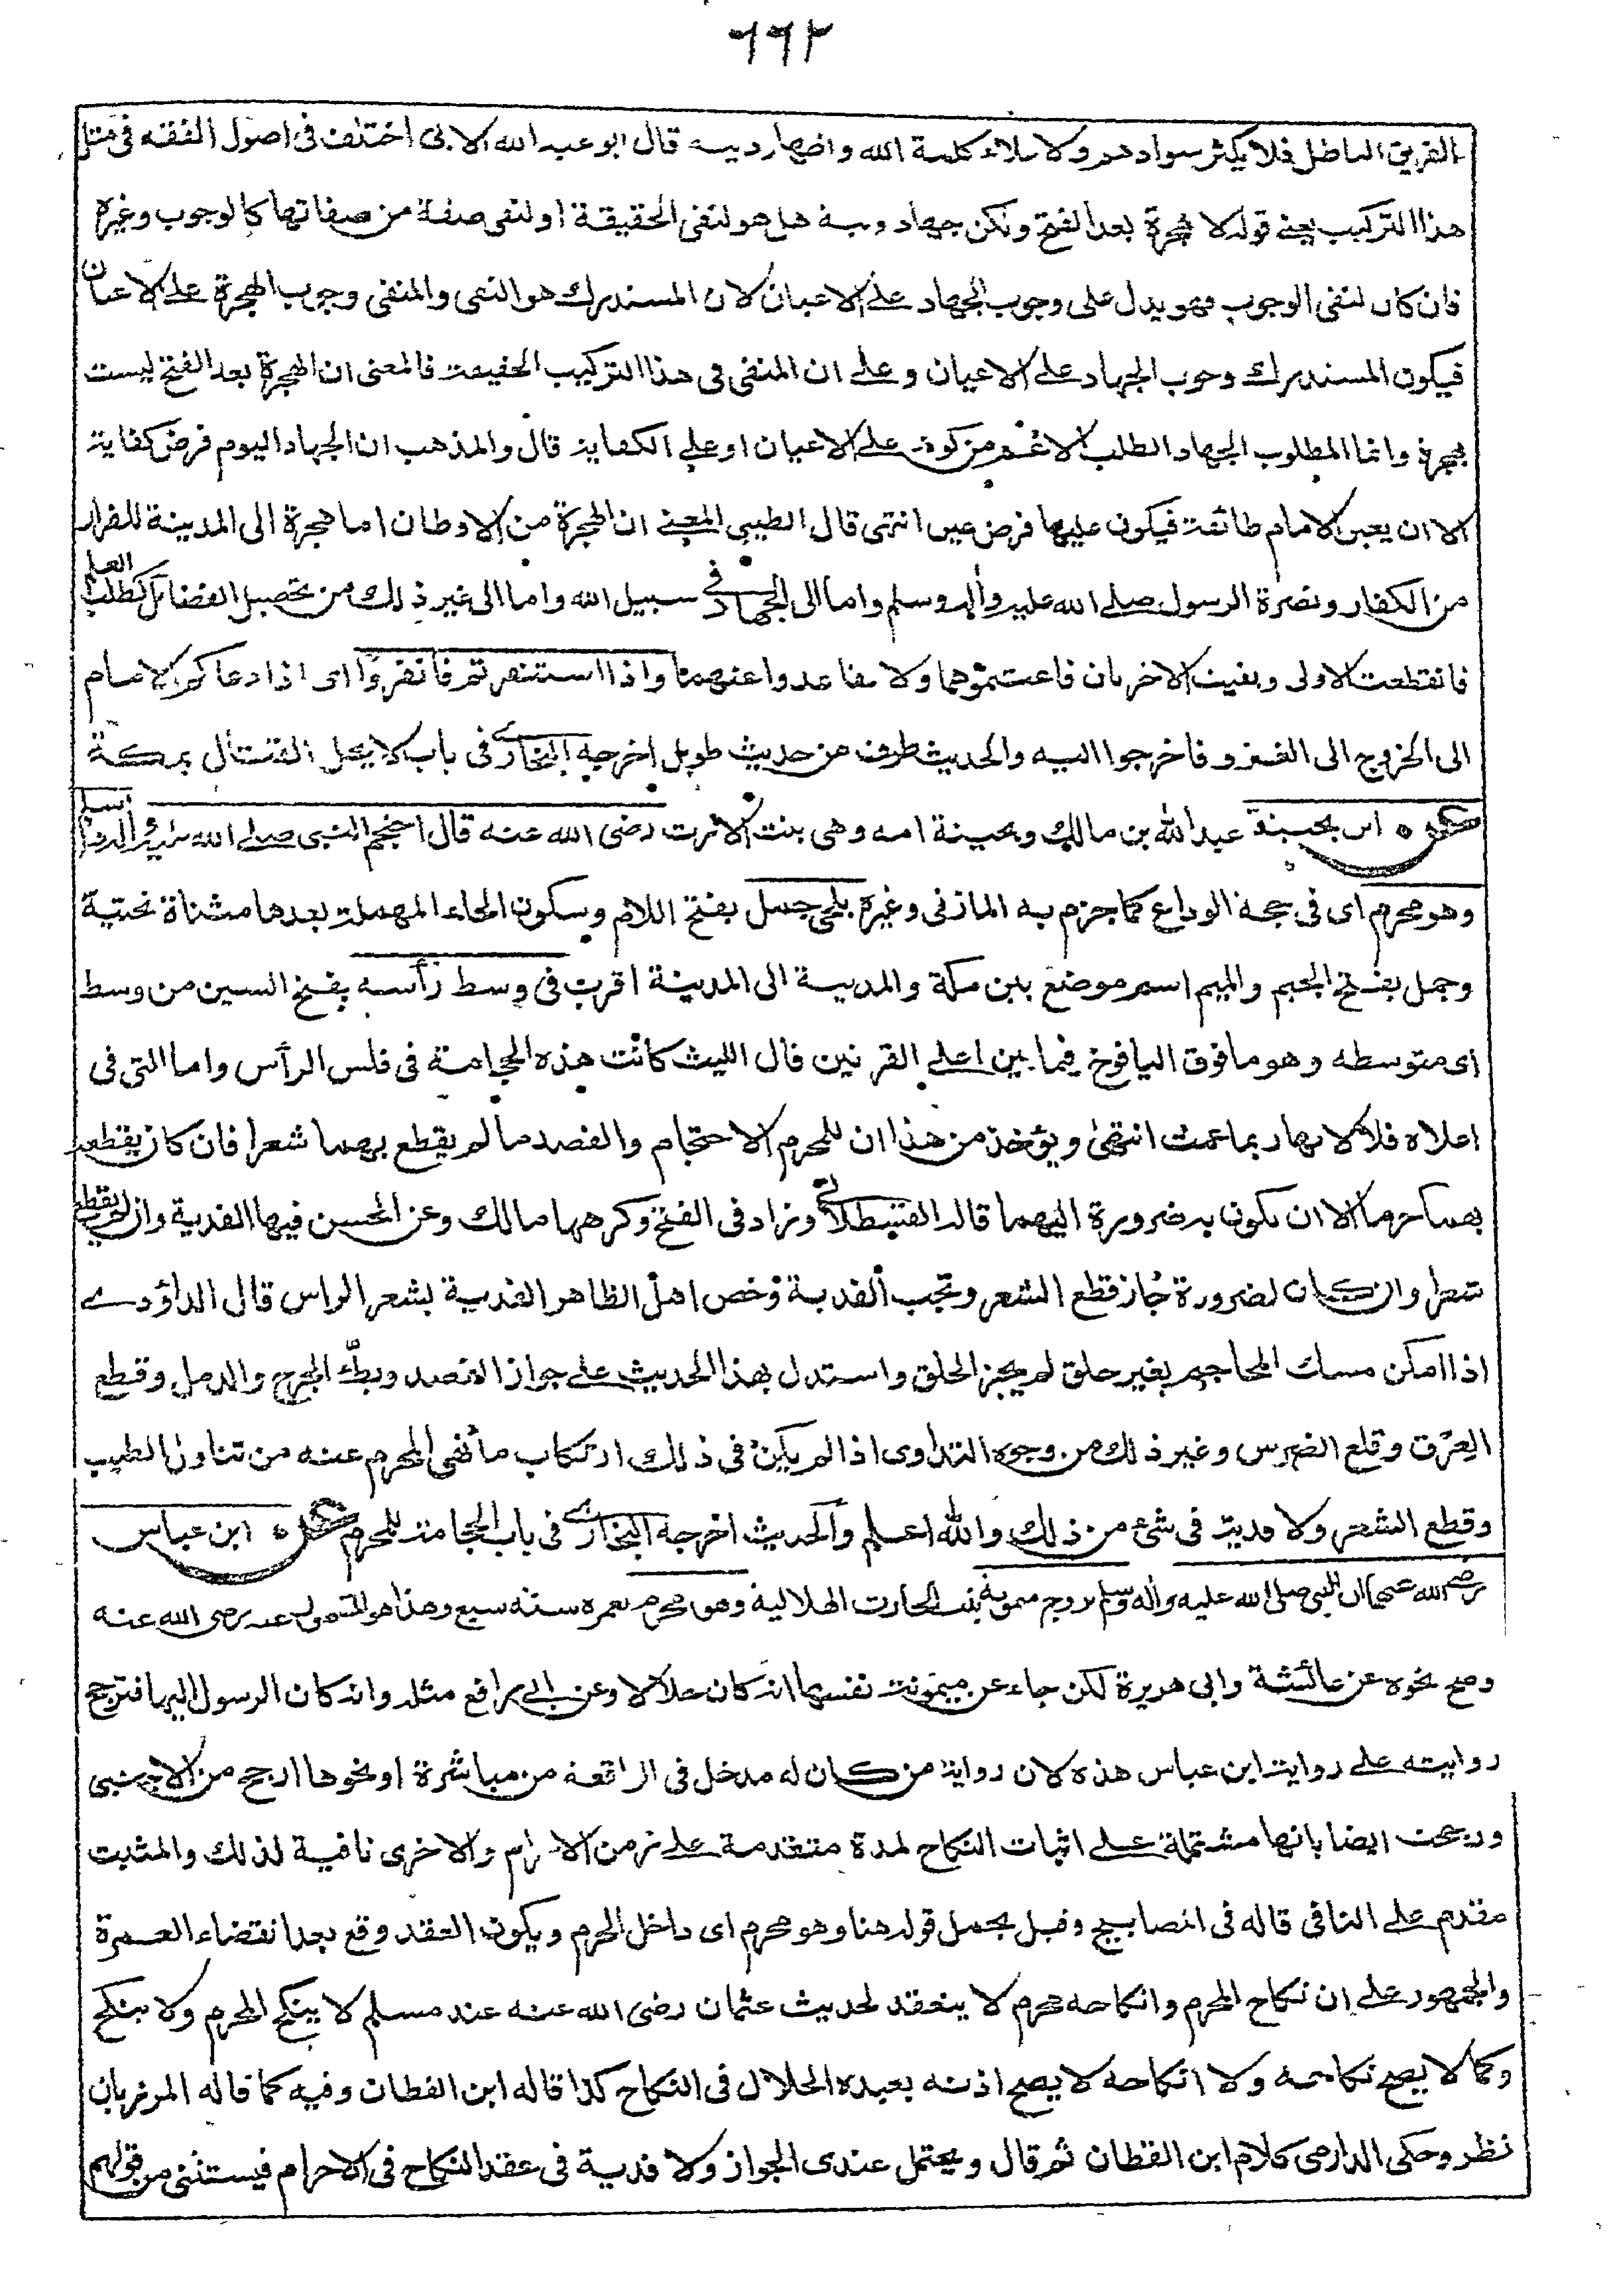 ٦٦٢
الفريق الباطل فلا يكثر سوادهم ولا علاء كلمة الله واظهار دينه قال ابو عبد الله الابى اختلف فى اصول الفقه فى مثل
هذا التركيب يعنى قوله لا هجرة بعد الفتح ولكن جهاد ونية هل هو لنفى الحقيقة او لنفى صفة من صفاتها كالوجوب وغيره
فان كان لنفى الوجوب فهو يدل على وجوب الجهاد على الاعيان لان المستدرك هو النفى والمنفى وجوب الهجرة على الاعيان
فيكون المستدرك وجوب الجهاد على الاعيان وعلى ان المنفى فى هذا التركيب الحقيقة فالمعنى ان الهجرة بعد الفتح ليست
بهجرة وانما المطلوب الجهاد الطلب الاعم من كونه على الاعيان او على الكفاية قال والمذهب ان الجهاد اليوم فرض كفاية
الا ان يعين الامام طائفة فيكون عليها فرض عين انتهى قال الطيبى المعنى ان الهجرة من الاوطان اما هجرة الى المدينة للفرار
من الكفار ونصرة الرسول صلى الله عليه واله وسلم واما الى الجهاد فى سبيل الله واما الى غير ذلك من تحصيل الفضائل كطلب العلم
فانقطعت الاولى وبقيت الاخريان فاغتنموهما ولا تقاعدوا عنهما واذا استنفرتم فانفروا اى اذا دعاكم الامام
الى الخروج الى الغزو فاخرجوا اليه والحديث طرف من حديث طويل اخرجه البخارى فى باب لا يحل القتال بمكة
ه ابن بحينة عبد الله بن مالك وبحينة امه وهى بنت الارت رضى الله عنه قال احتجم النبى صلى الله عليه واله وسلم
وهو محرم اى فى حجة الوداع كما جزم به المازنى وغيره بلحى جمل بفتح اللام وسكون الحاء المهملة بعدها مثناة تحتية
وجمل بفتح الجيم والميم اسم موضع بين مكة والمدينة الى المدينة اقرب فى وسط رأسه بفتح السين من وسط
اى متوسطه وهو ما فوق اليافوخ فيما بين اعلى القرنين قال الليث كانت هذه الحجامة فى فلس الرأس واما التى فى
اعلاه فلا لانها ربما عمت انتهى ويؤخذ من هذا ان للمحرم الاحتجام والفصد ما لم يقطع بهما شعرا فان كان يقطعه
بهما حرما الا ان يكون به ضرورة اليهما قاله القسطلانى وزاد فى الفتح وكرهها مالك وعن الحسن فيها الفدية وان لم يقطع
شعرا وان كان لضرورة جاز قطع الشعر وتجب الفدية وخص اهل الظاهر الفدية بشعر الراس قال الداؤدى
اذا امكن مسك المحاجم بغير حلق لم يجز الحلق واستدل بهذا الحديث على جواز الفصد وبطّ الجرح والدمل وقطع
العرق وقلع الضرس وغير ذلك من وجوه التداوى اذا لم يكن فى ذلك ارتكاب ما نهى المحرم عنه من تناول الطيب
وقطع الشعر ولا فدية فى شئ من ذلك والله اعلم والحديث اخرجه البخارى فى باب الحجامة للمحرم ه ابن عباس
رضى الله عنهما ان النبى صلى الله عليه واله وسلم تزوج ميمونة بنت الحارث الهلالية وهو محرم بعمرة سنة سبع وهذا هو المشهور عنه رضى الله عنه
وصح نحوه عن عائشة وابى هريرة لكن جاء عن ميمونة نفسها انه كان حلالا وعن ابى رافع مثله وانه كان الرسول اليها فترجح
روايته على رواية ابن عباس هذه لان رواية من كان له مدخل فى الواقعة من مباشرة او نحوها ارجح من الاجنبى
ورجحت ايضا بانها مشتملة على اثبات النكاح لمدة متقدمة على زمن الاحرام والاخرى نافية لذلك والمثبت
مقدم على النافى قاله فى المصابيح وقيل يحمل قوله هنا وهو محرم اى داخل الحرم ويكون العقد وقع بعد انقضاء العمرة
والجمهور على ان نكاح المحرم وانكاحه محرم لا ينعقد لحديث عثمان رضى الله عنه عند مسلم لا ينكح المحرم ولا ينكح
وكما لا يصح نكاحه ولا انكاحه لا يصح اذنه بعبده الحلال فى النكاح كذا قاله ابن القطان وفيه كما قاله المرزبان
نظر وحكى الدارمى كلام ابن القطان ثم قال ويحتمل عندى الجواز ولا فدية فى عقد النكاح فى الاحرام فيستثنى من قولهم